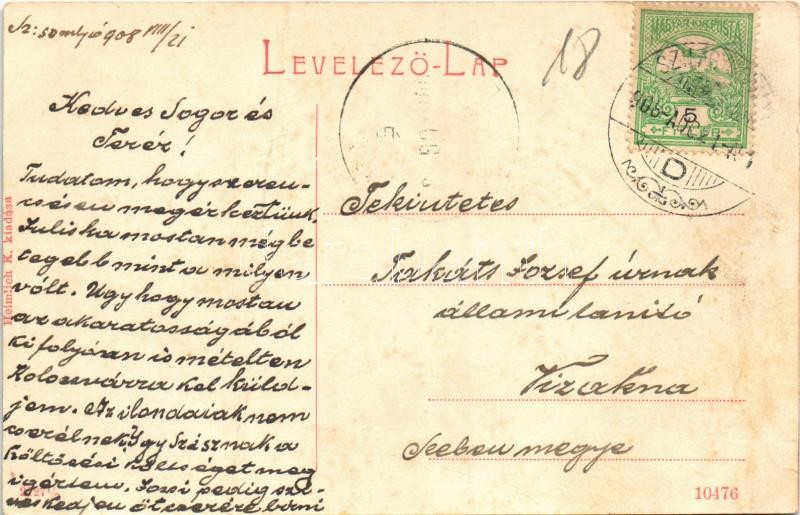 Sz: somlyó 908 VIII/21
LEVELEZŐ-LAP
18
MAGYAR KIR. POSTA
5
Kedves Sogor és
Teréz!
Tudatom, hogy szeren-
csésen megérkeztünk.
Juliska mostan még be
tegebb mint a milyen
volt. Ugy hogy mostan
az akaratosságából
kifolyóan ismételten
Kolozsvárra kel küld-
jem. Az ilondaiak nem
cserélnek. Igy Szásznak a
költözési költséget meg
igértem. Jozsi pedig szi-
veskedjen öt cserére birni
Tekintetes
Takáts Jozsef úrnak
állami tanitó
Vizakna
Szeben megye
Heimlich K. kiadása
10476